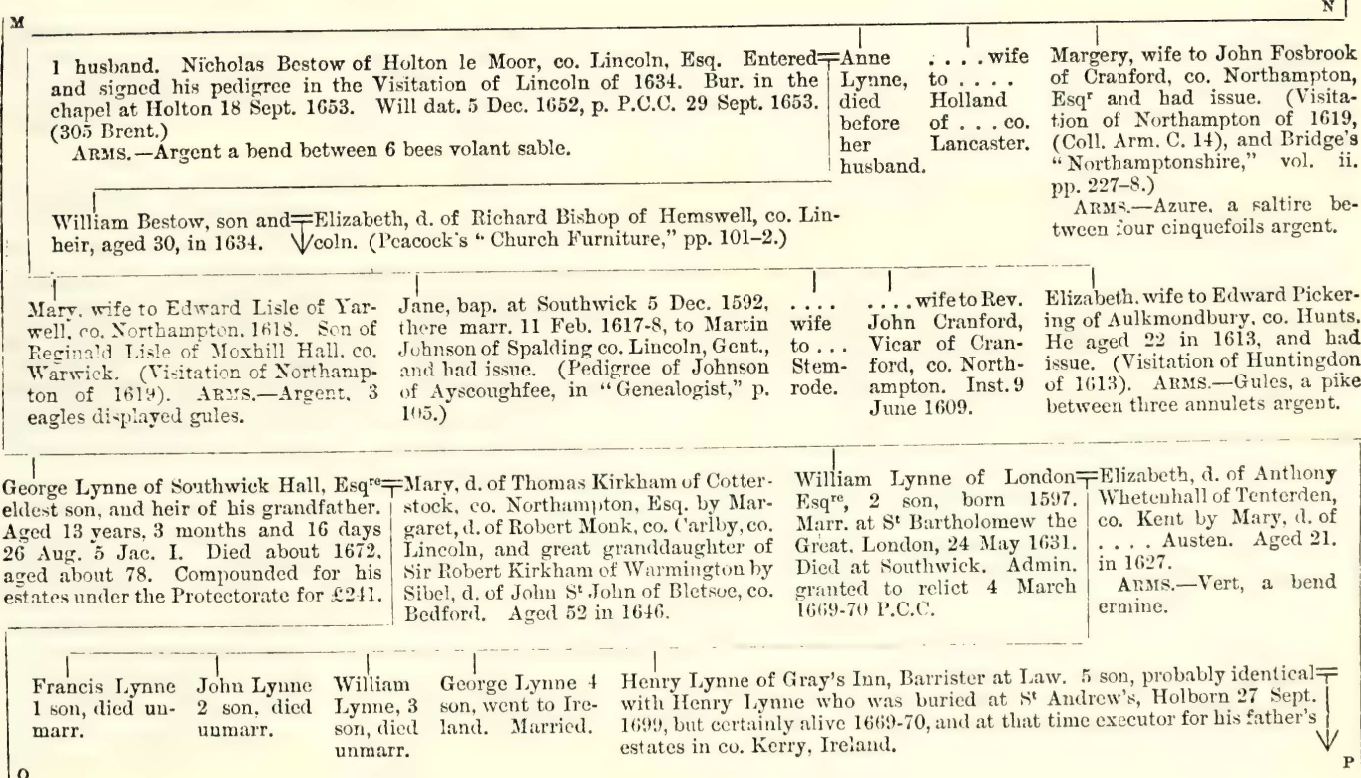 M
N
1 husband. Nicholas Bestow of Holton le Moor, co. Lincoln, Esq. Entered
and signed his pedigree in the Visitation of Lincoln of 1634. Bur. in the
chapel at Holton 18 Sept. 1653. Will dat. 5 Dec. 1652, p. P.C.C. 29 Sept. 1653.
(305 Brent.)
ARMS.—Argent a bend between 6 bees volant sable.
Anne
Lynne,
died
before
her
husband.
. . . . wife
to . . . .
Holland
of . . . co.
Lancaster.
Margery, wife to John Fosbrook
of Cranford, co. Northampton,
Esqr and had issue. (Visita-
tion of Northampton of 1619,
(Coll. Arm. C. 14), and Bridge's
"Northamptonshire," vol. ii.
pp. 227–8.)
ARMS.—Azure, a saltire be-
tween four cinquefoils argent.
William Bestow, son and
heir, aged 30, in 1634.
Elizabeth, d. of Richard Bishop of Hemswell, co. Lin-
coln. (Peacock's "Church Furniture," pp. 101–2.)
Mary, wife to Edward Lisle of Yar-
well, co. Northampton, 1618. Son of
Reginald Lisle of Moxhill Hall, co.
Warwick. (Visitation of Northamp-
ton of 1619). ARMS.—Argent, 3
eagles displayed gules.
Jane, bap. at Southwick 5 Dec. 1592,
there marr. 11 Feb. 1617-8, to Martin
Johnson of Spalding co. Lincoln, Gent.,
and had issue. (Pedigree of Johnson
of Ayscoughfee, in "Genealogist," p.
105.)
. . . .
wife
to . . .
Stem-
rode.
. . . . wife to Rev.
John Cranford,
Vicar of Cran-
ford, co. North-
ampton. Inst. 9
June 1609.
Elizabeth, wife to Edward Picker-
ing of Aulkmondbury, co. Hunts.
He aged 22 in 1613, and had
issue. (Visitation of Huntingdon
of 1613). ARMS.—Gules, a pike
between three annulets argent.
George Lynne of Southwick Hall, Esqre
eldest son, and heir of his grandfather.
Aged 13 years, 3 months and 16 days
26 Aug. 5 Jac. I. Died about 1672,
aged about 78. Compounded for his
estates under the Protectorate for £241.
Mary, d. of Thomas Kirkham of Cotter-
stock, co. Northampton, Esq. by Mar-
garet, d. of Robert Monk, co. Carlby, co.
Lincoln, and great granddaughter of
Sir Robert Kirkham of Warmington by
Sibel, d. of John St John of Bletsoe, co.
Bedford. Aged 52 in 1646.
William Lynne of London
Esqre, 2 son, born 1597.
Marr. at St Bartholomew the
Great, London, 24 May 1631.
Died at Southwick. Admin.
granted to relict 4 March
1669-70 P.C.C.
Elizabeth, d. of Anthony
Whetenhall of Tenterden,
co. Kent by Mary, d. of
. . . . Austen. Aged 21,
in 1627.
ARMS.—Vert, a bend
ermine.
Francis Lynne
1 son, died un-
marr.
John Lynne
2 son, died
unmarr.
William
Lynne, 3
son, died
unmarr.
George Lynne 4
son, went to Ire-
land. Married.
Henry Lynne of Gray's Inn, Barrister at Law. 5 son, probably identical
with Henry Lynne who was buried at St Andrew's, Holborn 27 Sept.
1699, but certainly alive 1669-70, and at that time executor for his father's
estates in co. Kerry, Ireland.
O
P